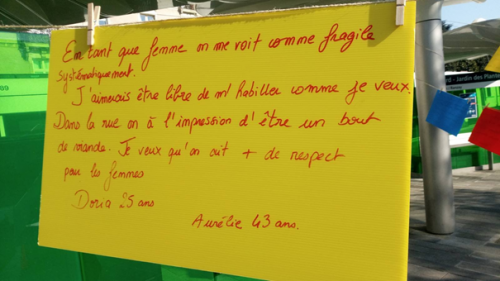 En tant que femme on me voit comme fragile
systématiquement.
J'aimerais être libre de m'habiller comme je veux.
Dans la rue on à l'impression d'être un bout
de viande. Je veux qu'on ait + de respect
pour les femmes
Doria 25 ans
Aurélie 43 ans.
Jardin des Plan
09